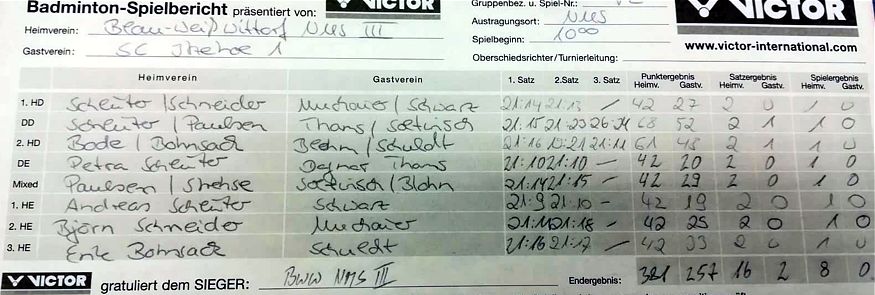 Badminton-Spielbericht präsentiert von: VICTOR
Gruppenbez. u. Spiel-Nr.:
VICTOR
Heimverein: Blau-Weiß Wittorf NMS III
Austragungsort: NMS
Gastverein: SC Itzehoe 1
Spielbeginn: 10 00
Oberschiedsrichter/Turnierleitung:
www.victor-international.com
Heimverein Gastverein 1. Satz 2. Satz 3. Satz Punktergebnis Satzergebnis Spielergebnis
Heimv. Gastv. Heimv. Gastv. Heimv. Gastv.
1. HD Scheuter / Schneider / Schwarz 21:14 21:13 / 42 27 2 0 1 0
DD Scheuter / Paulsen Thans / 21:15 21:23 26:24 68 52 2 1 1 0
2. HD Bode / Bohnsack / Schuldt 21:16 21:11 61 48 2 1 1 0
DE Petra Scheuter Dagmar Thans 21:10 21:10 - 42 20 2 0 1 0
Mixed Paulsen / / Blohn 21:14 21:15 - 42 29 2 0 1 0
1. HE Andreas Scheuter Schwarz 21:9 21:10 - 42 19 2 0 1 0
2. HE Björn Schneider 21:18 - 42 25 2 0 1 0
3. HE Bohnsack Schuldt 21:16 21:17 / 42 33 2 0 1 0
VICTOR gratuliert dem SIEGER: BWW NMS III Endergebnis: 381 257 16 2 8 0